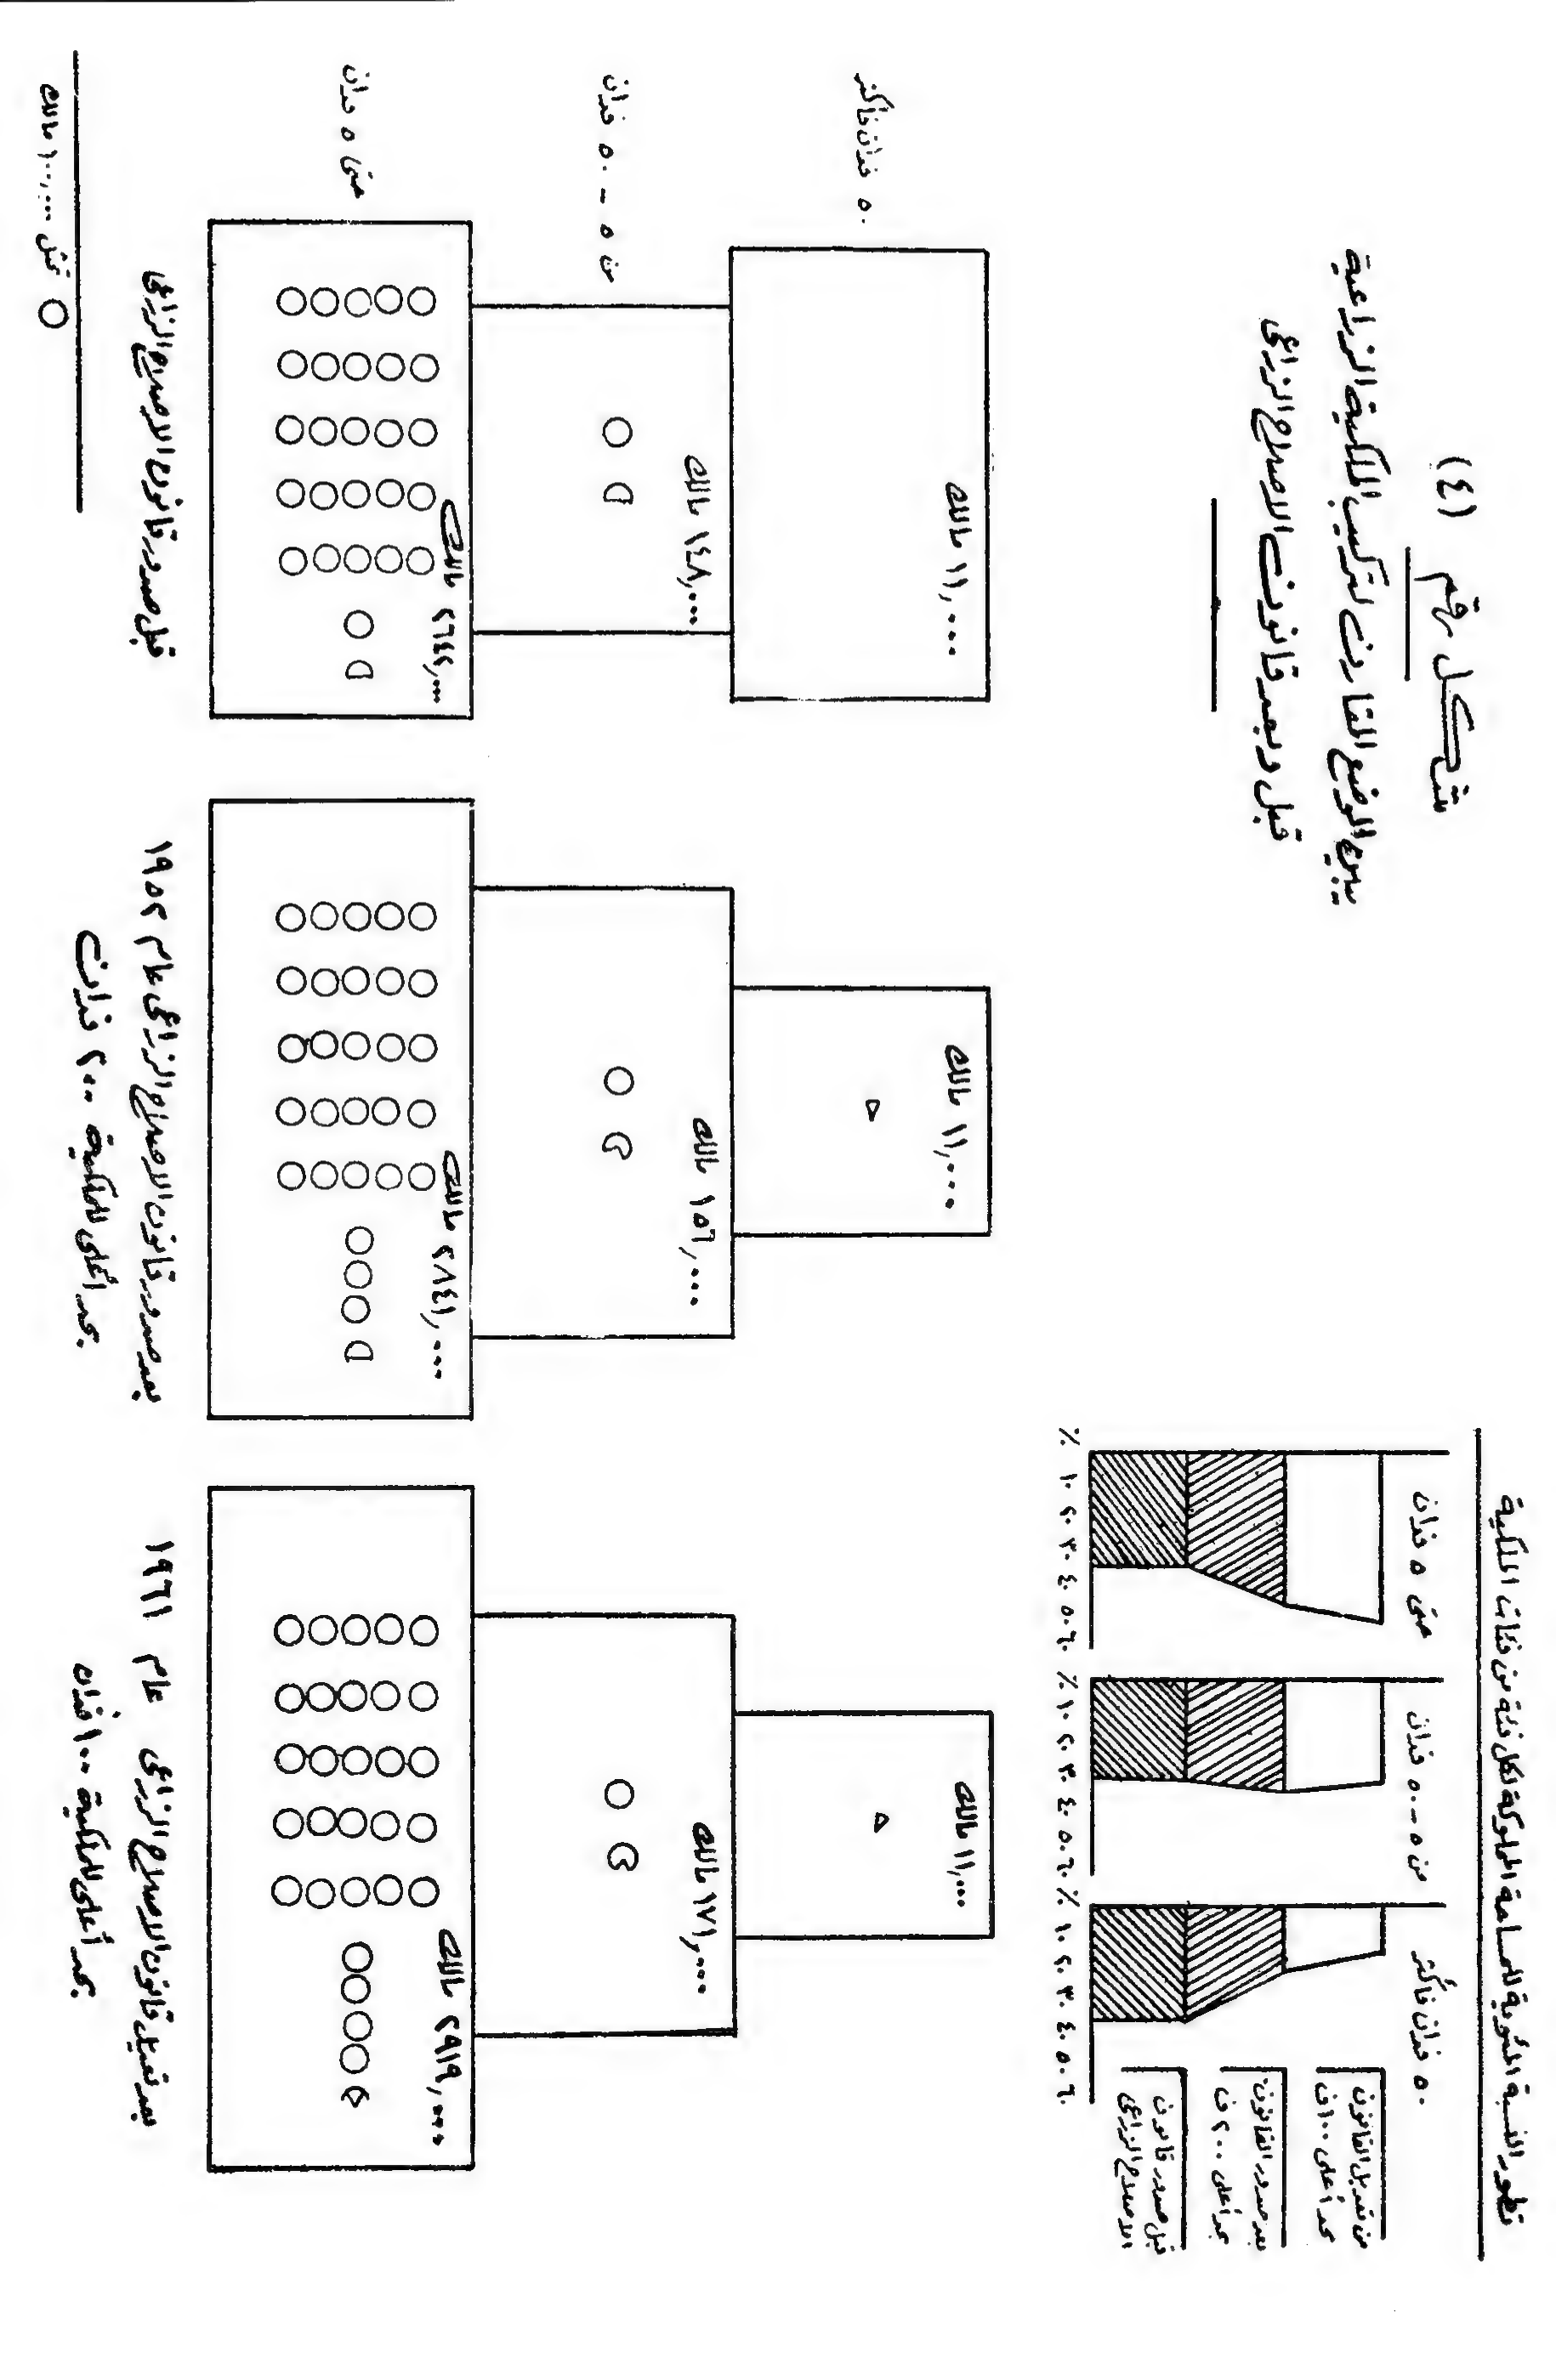 شكل رقم (٤)
يبين الوضع المقارن لتركيب الملكية الزراعية
قبل وبعد قانون الاصلاح الزراعى
تطور النسبة المئوية للمساحة المملوكة لكل فئة من فئات الملكية
حتى ٥ فدان
من ٥ – ٥٠ فدان
٥٠ فدان فأكثر
من تعديل القانون
بحد أعلى ١٠٠ ف
بعد صدور القانون
بحد أعلى ٢٠٠ ف
قبل صدور قانون
الاصلاح الزراعى
٪ ١٠ ٢٠ ٣٠ ٤٠ ٥٠ ٦٠
٪ ١٠ ٢٠ ٣٠ ٤٠ ٥٠ ٦٠
٪ ١٠ ٢٠ ٣٠ ٤٠ ٥٠ ٦٠
٥٠ فدان فأكثر
١١,٠٠٠ مالك
١١,٠٠٠ مالك
١١,٠٠٠ مالك
من ٥ – ٥٠ فدان
١٤٨,٠٠٠ مالك
١٥٦,٠٠٠ مالك
١٧١,٠٠٠ مالك
حتى ٥ فدان
٢٦٤٢,٠٠٠ مالك
٢٨٤١,٠٠٠ مالك
٢٩١٩,٠٠٠ مالك
قبل صدور قانون الاصلاح الزراعى
بعد صدور قانون الاصلاح الزراعى عام ١٩٥٢
بحد أعلى للملكية ٢٠٠ فدان
بعد تعديل قانون الاصلاح الزراعى عام ١٩٦١
بحد أعلى للملكية ١٠٠ فدان
تمثل ١٠٠,٠٠٠ مالك